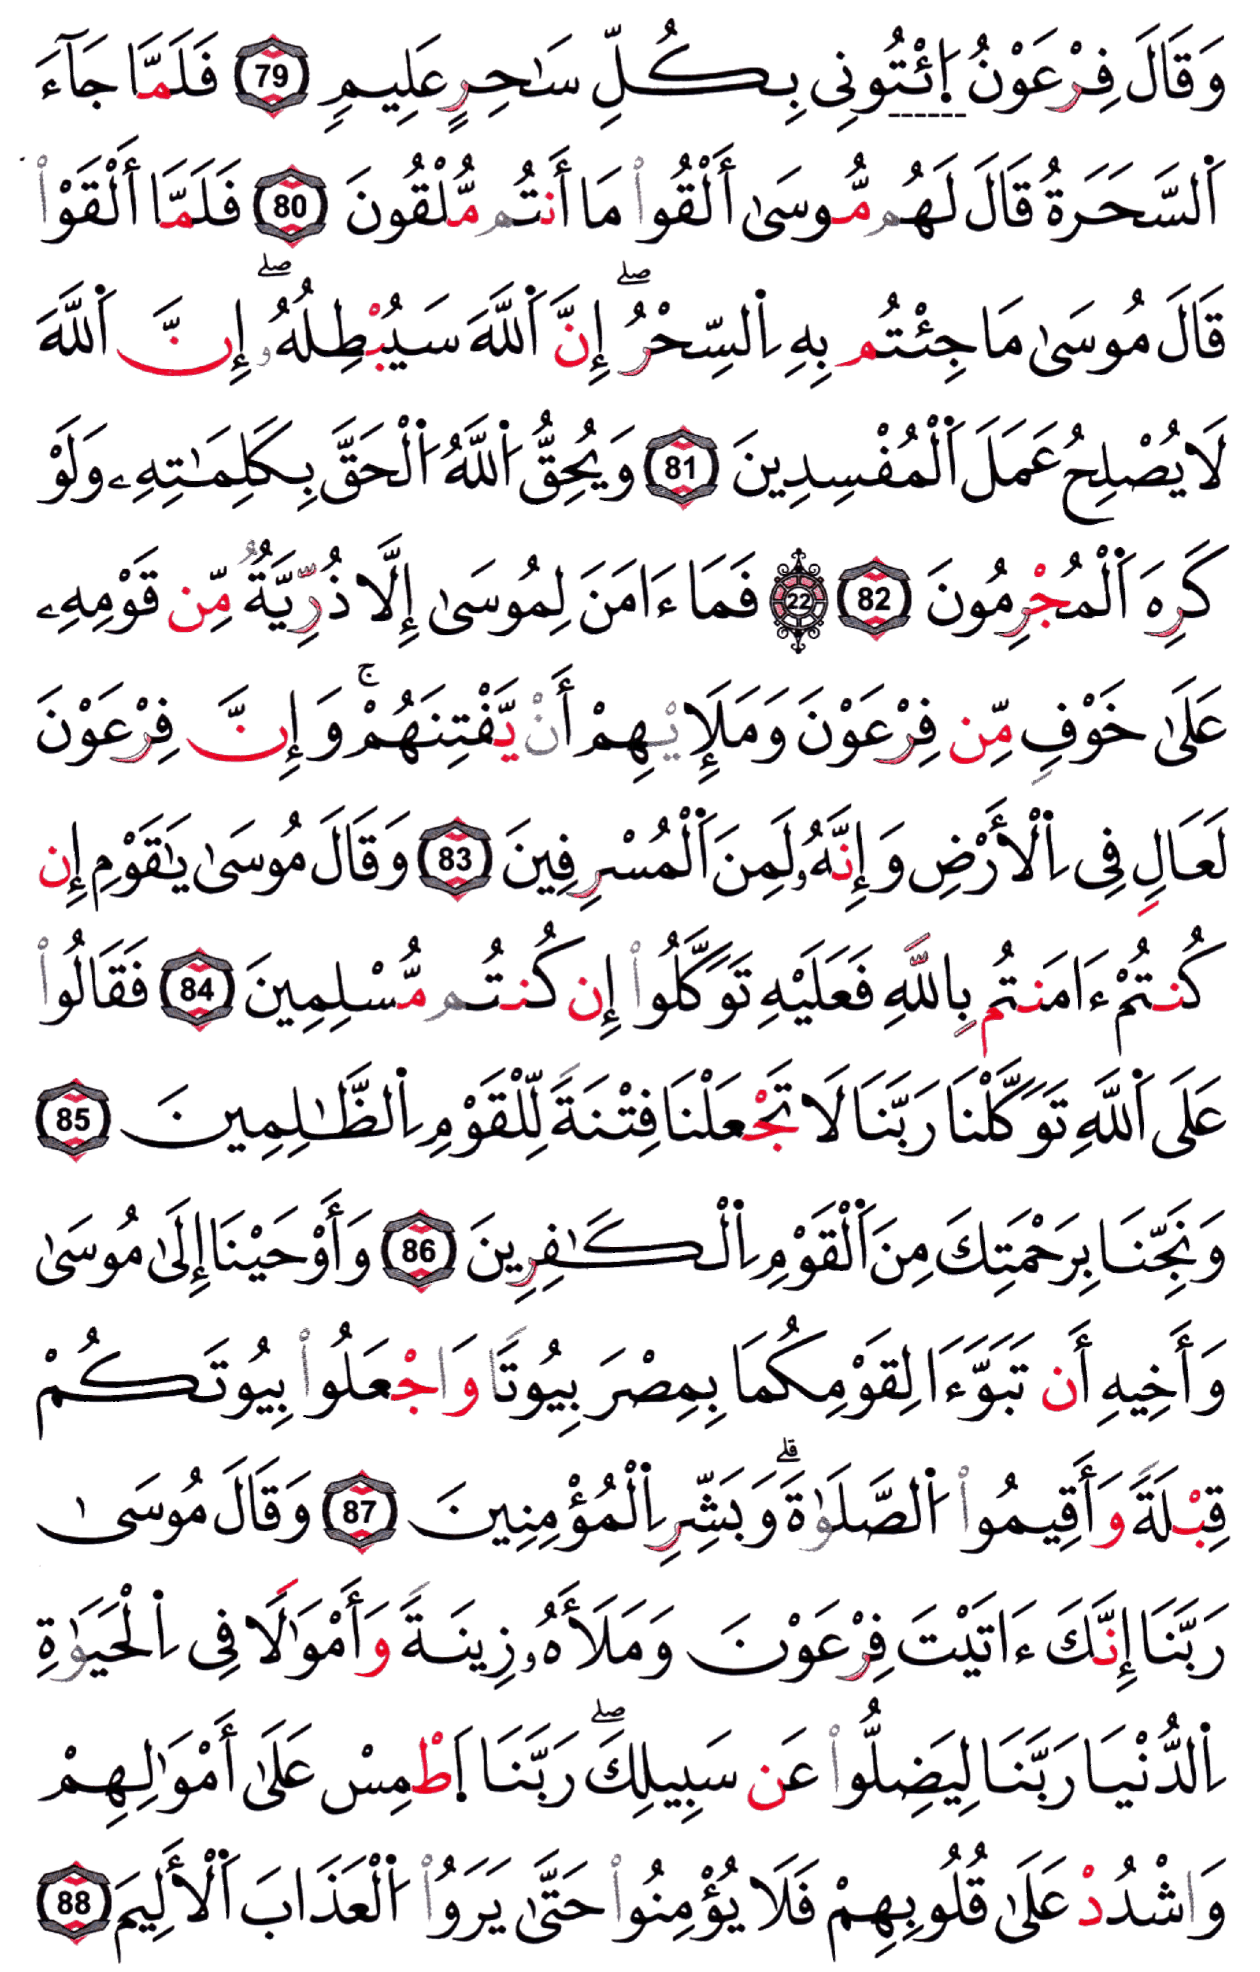 وَقَالَ فِرْعَوْنُ اُ۪ئْتُونِي بِكُلِّ سَٰحِرٍ عَلِيمٍ 79 فَلَمَّا جَآءَ
اَ۬لسَّحَرَةُ قَالَ لَهُم مُّوسَىٰ أَلْقُوا۟ مَا أَنتُم مُّلْقُونَ 80 فَلَمَّا أَلْقَوْا۟
قَالَ مُوسَىٰ مَا جِئْتُم بِهِ اِ۬لسِّحْرُ ۖ إِنَّ اَ۬للَّهَ سَيُبْطِلُهُۥ ۖ إِنَّ اَ۬للَّهَ
لَا يُصْلِحُ عَمَلَ اَ۬لْمُفْسِدِينَ 81 وَيُحِقُّ اُ۬للَّهُ اُ۬لْحَقَّ بِكَلِمَٰتِهِۦ وَلَوْ
كَرِهَ اَ۬لْمُجْرِمُونَ 82 22 فَمَا ءَامَنَ لِمُوسَىٰ إِلَّا ذُرِّيَّةٌ مِّن قَوْمِهِۦ
عَلَىٰ خَوْفٍ مِّن فِرْعَوْنَ وَمَلَإِي۟هِمْ أَنْ يَّفْتِنَهُمْ ۚ وَإِنَّ فِرْعَوْنَ
لَعَالٍ فِي اِ۬لْأَرْضِ وَإِنَّهُۥ لَمِنَ اَ۬لْمُسْرِفِينَ 83 وَقَالَ مُوسَىٰ يَٰقَوْمِ إِن
كُنتُمْ ءَامَنتُم بِاللَّهِ فَعَلَيْهِ تَوَكَّلُوا۟ إِن كُنتُم مُّسْلِمِينَ 84 فَقَالُوا۟
عَلَى اَ۬للَّهِ تَوَكَّلْنَا رَبَّنَا لَا تَجْعَلْنَا فِتْنَةً لِّلْقَوْمِ اِ۬لظَّٰلِمِينَ 85
وَنَجِّنَا بِرَحْمَتِكَ مِنَ اَ۬لْقَوْمِ اِ۬لْكَٰفِرِينَ 86 وَأَوْحَيْنَا إِلَىٰ مُوسَىٰ
وَأَخِيهِ أَن تَبَوَّءَا لِقَوْمِكُمَا بِمِصْرَ بِيُوتًا وَاجْعَلُوا۟ بِيُوتَكُمْ
قِبْلَةً وَأَقِيمُوا۟ اُ۬لصَّلَوٰةَ ۗ وَبَشِّرِ اِ۬لْمُؤْمِنِينَ 87 وَقَالَ مُوسَىٰ
رَبَّنَا إِنَّكَ ءَاتَيْتَ فِرْعَوْنَ وَمَلَأَهُۥ زِينَةً وَأَمْوَٰلًا فِي اِ۬لْحَيَوٰةِ
اِ۬لدُّنْيَا رَبَّنَا لِيَضِلُّوا۟ عَن سَبِيلِكَ ۖ رَبَّنَا اَ۪طْمِسْ عَلَىٰ أَمْوَٰلِهِمْ
وَاشْدُدْ عَلَىٰ قُلُوبِهِمْ فَلَا يُؤْمِنُوا۟ حَتَّىٰ يَرَوُا۟ اُ۬لْعَذَابَ اَ۬لْأَلِيمَ 88